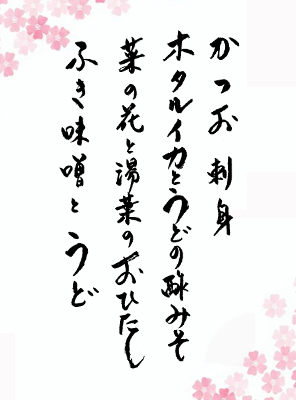 かつお刺身
ホタルイカとうどの酢みそ
菜の花と湯葉のおひたし
ふき味噌とうど